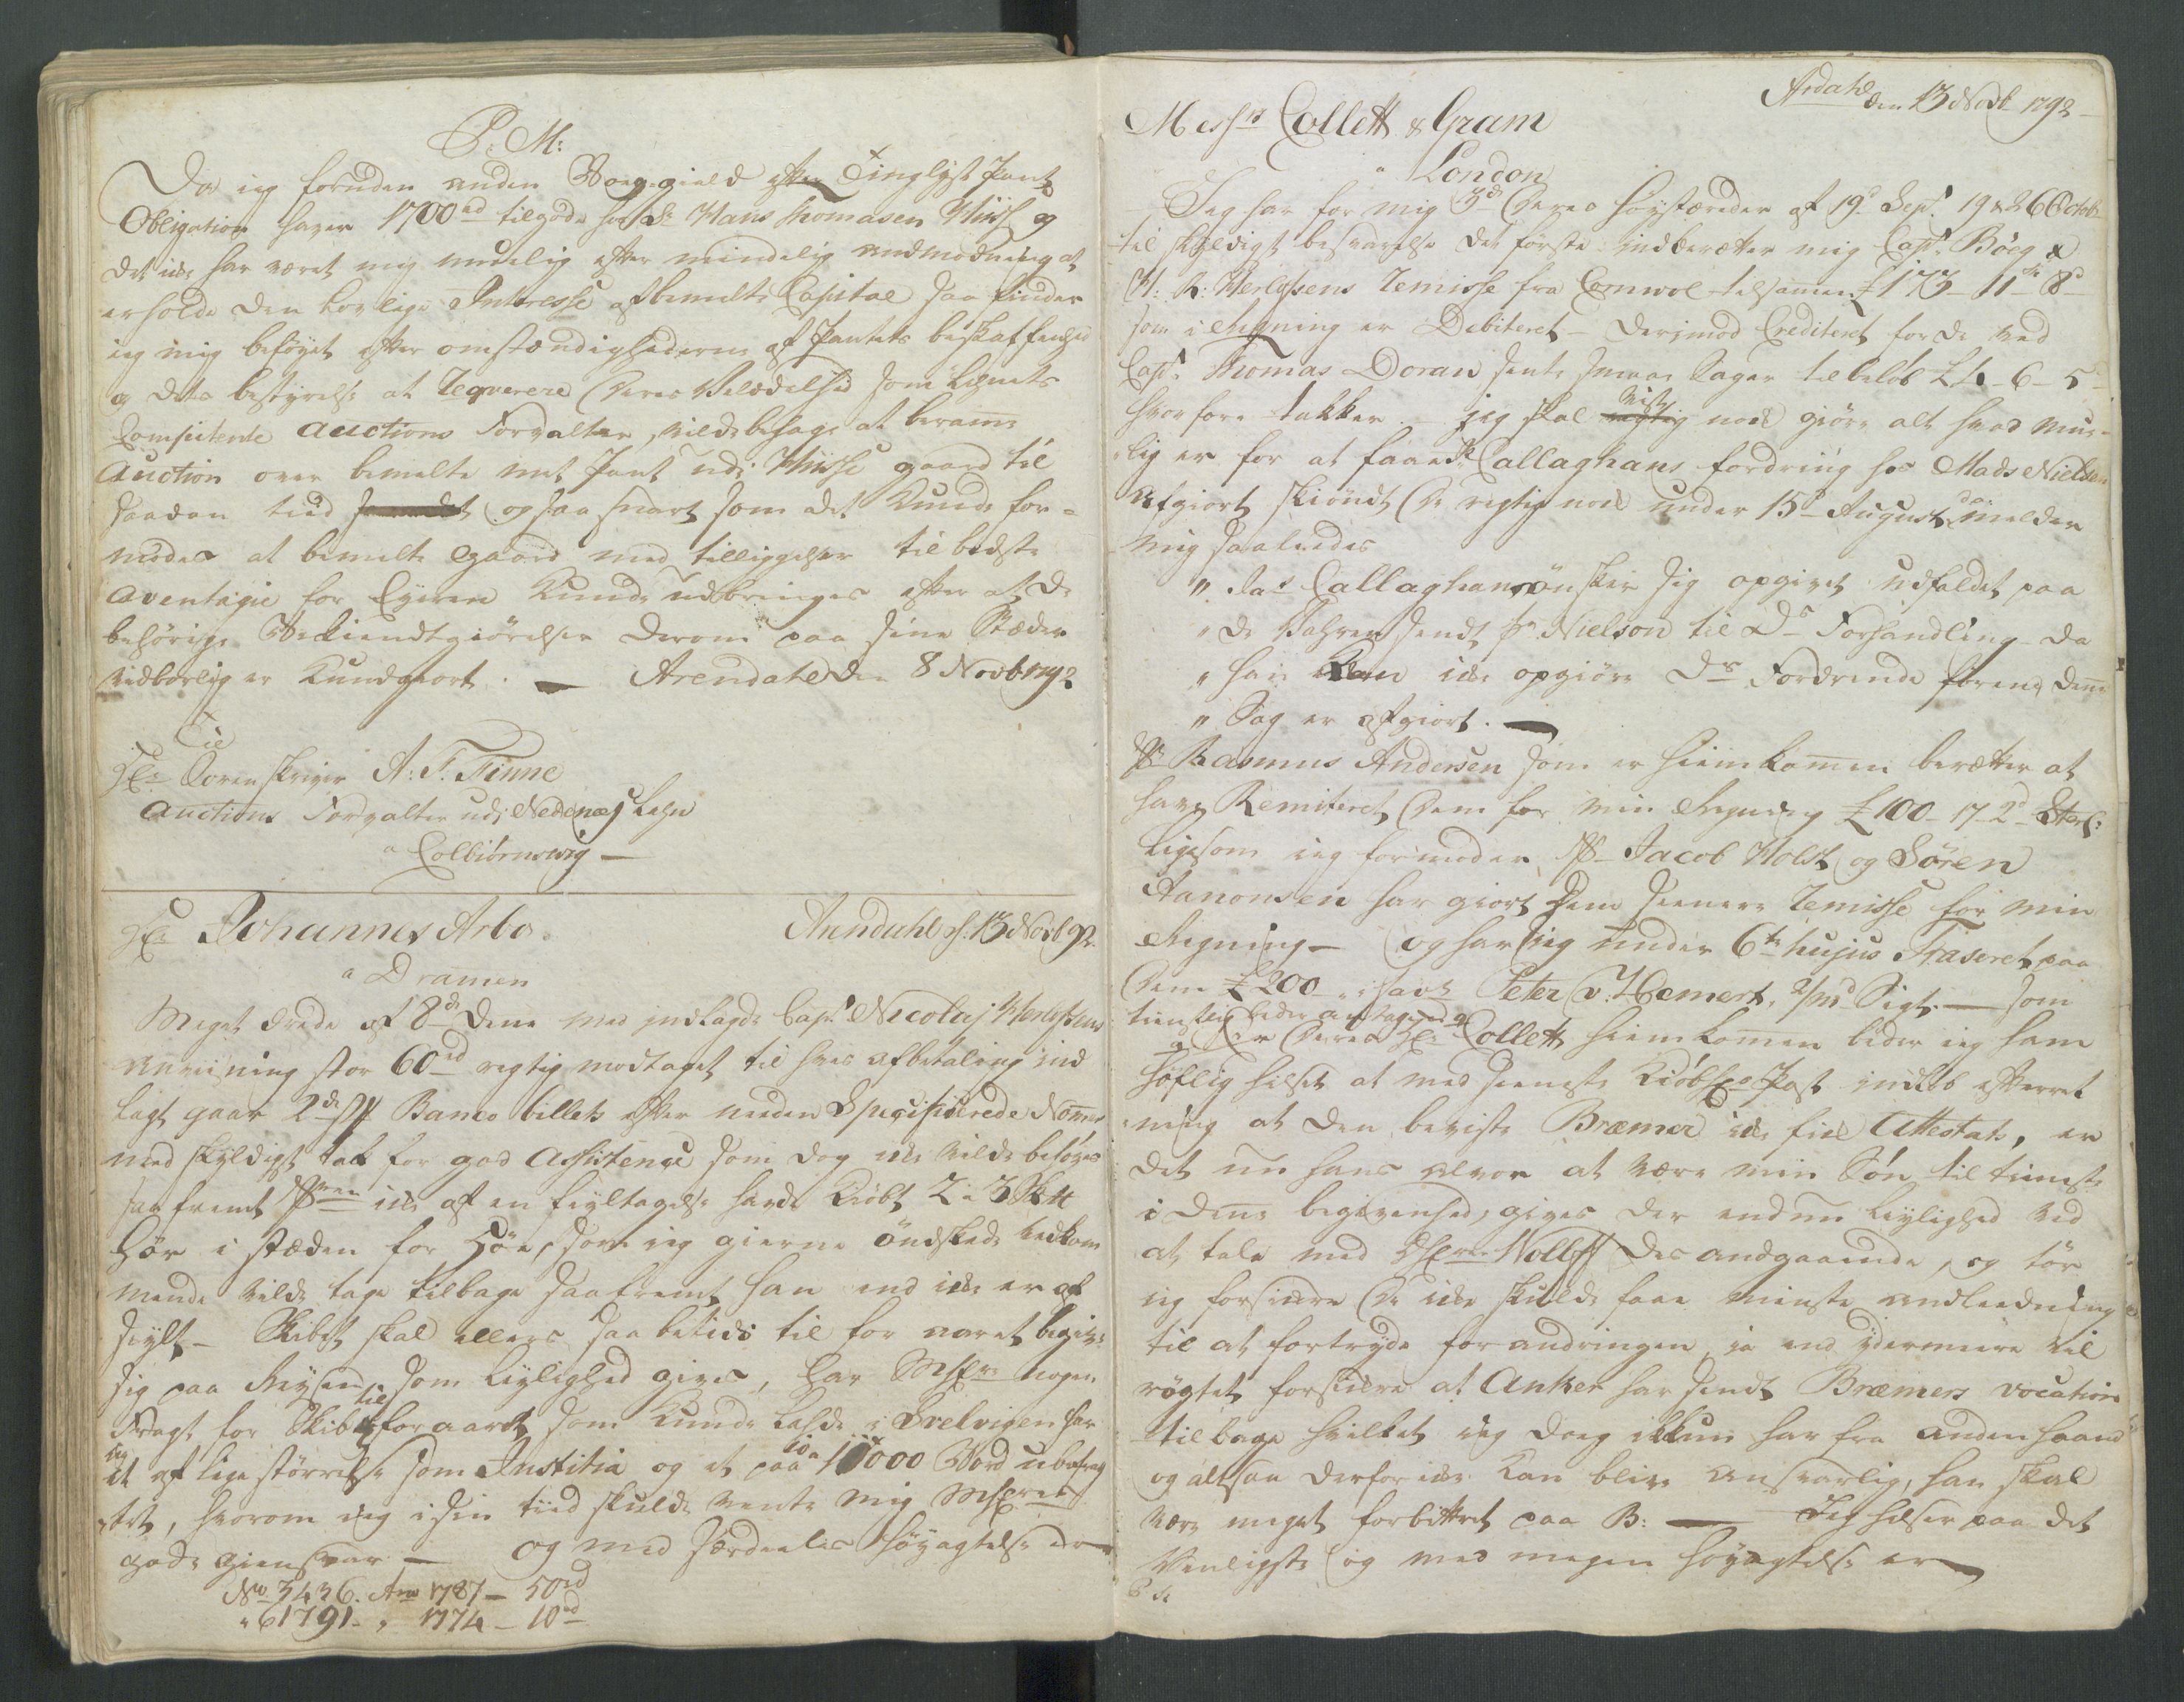 P: M:
Da ieg foruden anden Bog-gield efter Tinglyst Pant
Obligation haver 1700rd tilgode hos Sr Hans Thomasen Hiisse og
det icke har været mig muelig efter mindelig anmodning at
erholde den lovlige Interesse af bemelte Capital saa finder
ieg mig beføyet efter omstændighederne af Pantets beskaffenhed
og dets bestyrelse at Reqverere Deres Velædelhed som Lignets
Competente Auctions Forvalter, vilde behage at beramme
Auction over bemelte mit Pant udi Hiisse gaard til
saadan tiid og saa snart som det kunde for-
modes at bemelte Gaard med tilliggelser til bedste
Aventagie for Eyeren kunde udbringes efter at de
behørige Bekiendtgiørelser derom paa sine Stæder
vedbørlig er kundgiort. — Arendahl den 8 Novb 1792
Til
Hr Sorenskriver A: F. Finne
Auctions Forvalter udi Nedenæs Lehn
a Colbiörnsvig —
Hr Johannes Arbo Arendahl d. 13 Novb 92.
a Dramen
Meget ærede af 8de dene med indlagde Capt Nicolaj Herlofsens
anviisning stor 60rd rigtig modtaget til hvis afbetaling ind
lagt gaar 2de st Banco billets efter neden Specificerede Nommer
med skyldigst tak for god Assistence som dog icke vilde behøves
saa fremt icke af en feyltagelse havde kiöbt 2 a 3 Sk℔
Hör i stæden for Höe, som ieg gierne öndskede vedkom
mende vilde tage tilbage saafremt han end icke er af
seylt — Skibet skal ellers saa betids til for aaret begive
sig paa Reysen, som leylighed gives, har nogen
Fragt for Skibe til foraaret som kunde lasde i Svelvigen har
ieg et af lige størrelse som Justitia og et paa 10 a 11000 Bord ubefrag
tet, hvorom ieg i sin tiid skulde vente mig
gode giensvar — og med særdeles Høyagtelse er
No 3436. Ano 1787 — 50rd
" 61791 - " 1774 — 10rd
Ardahl den 13 Novb 1792
Messrs Collett & Gram
a London
Jeg har for mig 3de Deres høystærede af 19d Sept. 19 & 26 Octobr
til skyldigst besvarelse det første indberetter mig Capt. Böeg &
H: R: Herlofsens Remisse fra Cornwol tilsamen £ 173 - 11s - 8d
som i Regning er Debiteret - derimod Crediteret for de ved
Capt. Thomas Doran sente smaae Sager tilbeløb £ 4 - 6 - 5
hvorfore takker — jeg skal vist nok giøre alt hvad mue-
lig er for at faae Sr Callaghans fordring hos Mads Nielsen
Afgiort skiöndt De rigtig nok under 15d August melder
mig saaledes
" Jas Callaghan ønsker sig opgivet udfaldet paa
" de Vahrer sendt pr Nielson til Ds Forhandling da
" han kan icke opgiøre Ds Fordrende förend denne
" Sag er afgiort. —
Sr Rasmus Andersen som er hiemkommen beretter at
have Remiteret Dem for min Regning £ 100 - 17 - 2d Sterl:
ligesom ieg formoder Sr Jacob Holst og Sören
Aanonsen har giort Dem seenere Remisse for min
Regning — og har ieg under 6te hujus Traseret paa
Dem £ 200 — i favr Peter v: Hemert, 2/md Sigt. — som
tienstlig beder antaget
Er Deres Hr Collett hiemkommen beder ieg ham
høflig hilset at med seeneste Kiöbh. Post indløb efterret
ning at den beviste Bræmer icke fik Attestats, er
det nu hans alvor at være min Søn til tieneste
i denne begivenhed, gives der endnu leylighed ved
at tale med Wolff des andgaaende, og tör
ieg forsikre De icke skulde faae minste andleedning
til at fortryde forandringen, ja end ydermeere vil
rögtet forsikre at Anker har sendt Bræmers vocation
tilbage hvilket ieg dog ikkun har fra anden haand
og altsaa derfor icke kan blive ansvarlig, han skal
være meget forbittret paa B: — Jeg hilser paa det
Venligste og med megen høyagtelse er